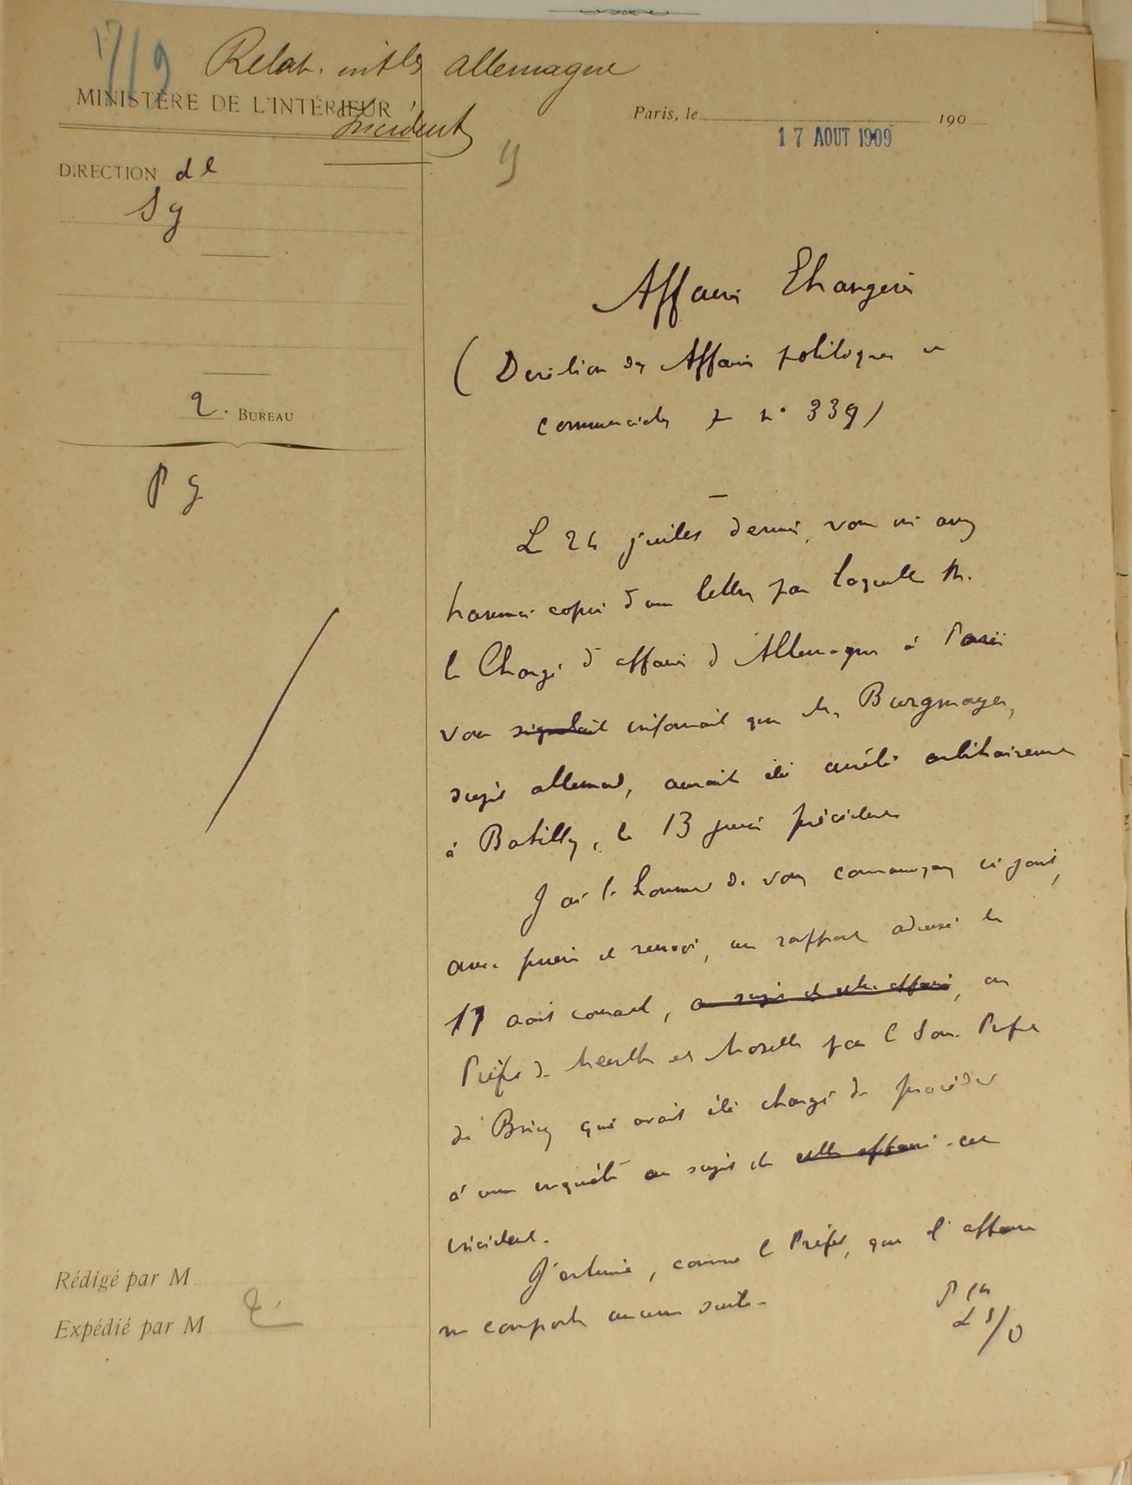 17/9
Relat. intles Allemagne
Incident
MINISTÈRE DE L'INTÉRIEUR
Paris, le 17 AOUT 1909 190
DIRECTION de
Sg
2. BUREAU
Affaires Etrangères
( Direction des Affaires politiques et
commerciales n° 339)
Le 24 juillet dernier, vous m'avez
transmis copie d'une lettre par laquelle M.
le Chargé d'affaires d'Allemagne à Paris
vous signalait informait que M. Burgmayer,
sujet allemand, aurait été arrêté arbitrairement
à Batilly, le 13 juin précédent
J'ai l'honneur de vous communiquer ci-joint,
avec prière de renvoi, un rapport adressé le
17 août courant, au sujet de cette affaire, au
Préfet de Meurthe et Moselle par le Sous Préfet
de Briey qui avait été chargé de procéder
à une enquête au sujet de cette affaire cet
incident.
J'estime, comme le Préfet, que l'affaire
ne comporte aucune suite.
Rédigé par M
Expédié par M